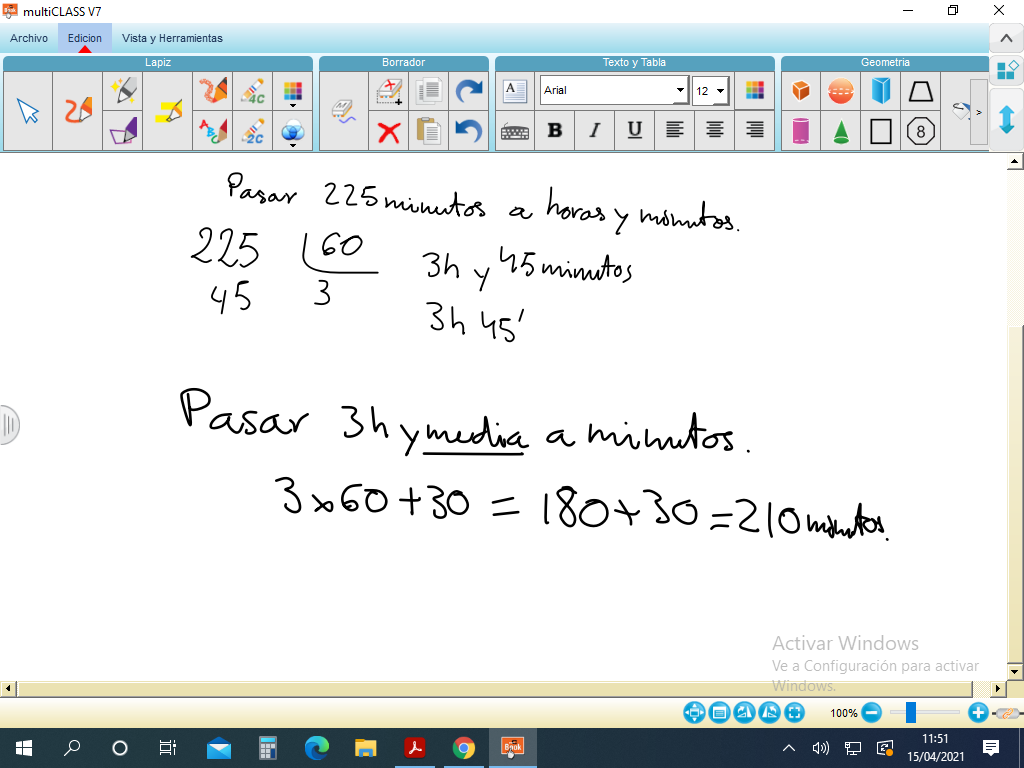 multiCLASS V7
Archivo Edicion Vista y Herramientas
Lapiz Borrador Texto y Tabla Geometria
4C A Arial 12
A B 2C B I U 8 >
Pasar 225 minutos a horas y minutos.
225 60 3h y 45 minutos
45 3
3h 45'
Pasar 3h y media a minutos.
3x60+30 = 180+30 = 210 minutos.
Activar Windows
Ve a Configuración para activar
Windows.
100%
Book 11:51
15/04/2021